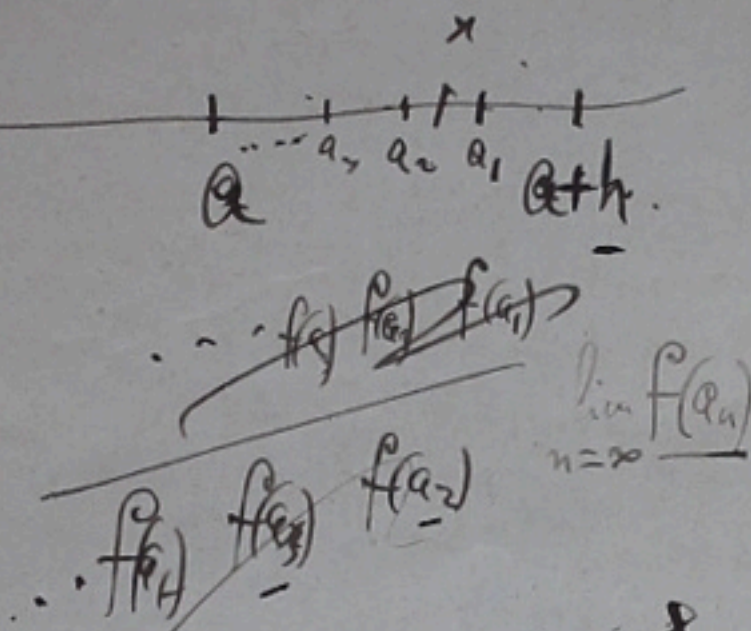 x
.... a₃ a₂ a₁
a a+h.
.... f(a₂) f(a₁)
lim f(aₙ)
n=∞
... f(a₄) f(a₃) f(a₂)